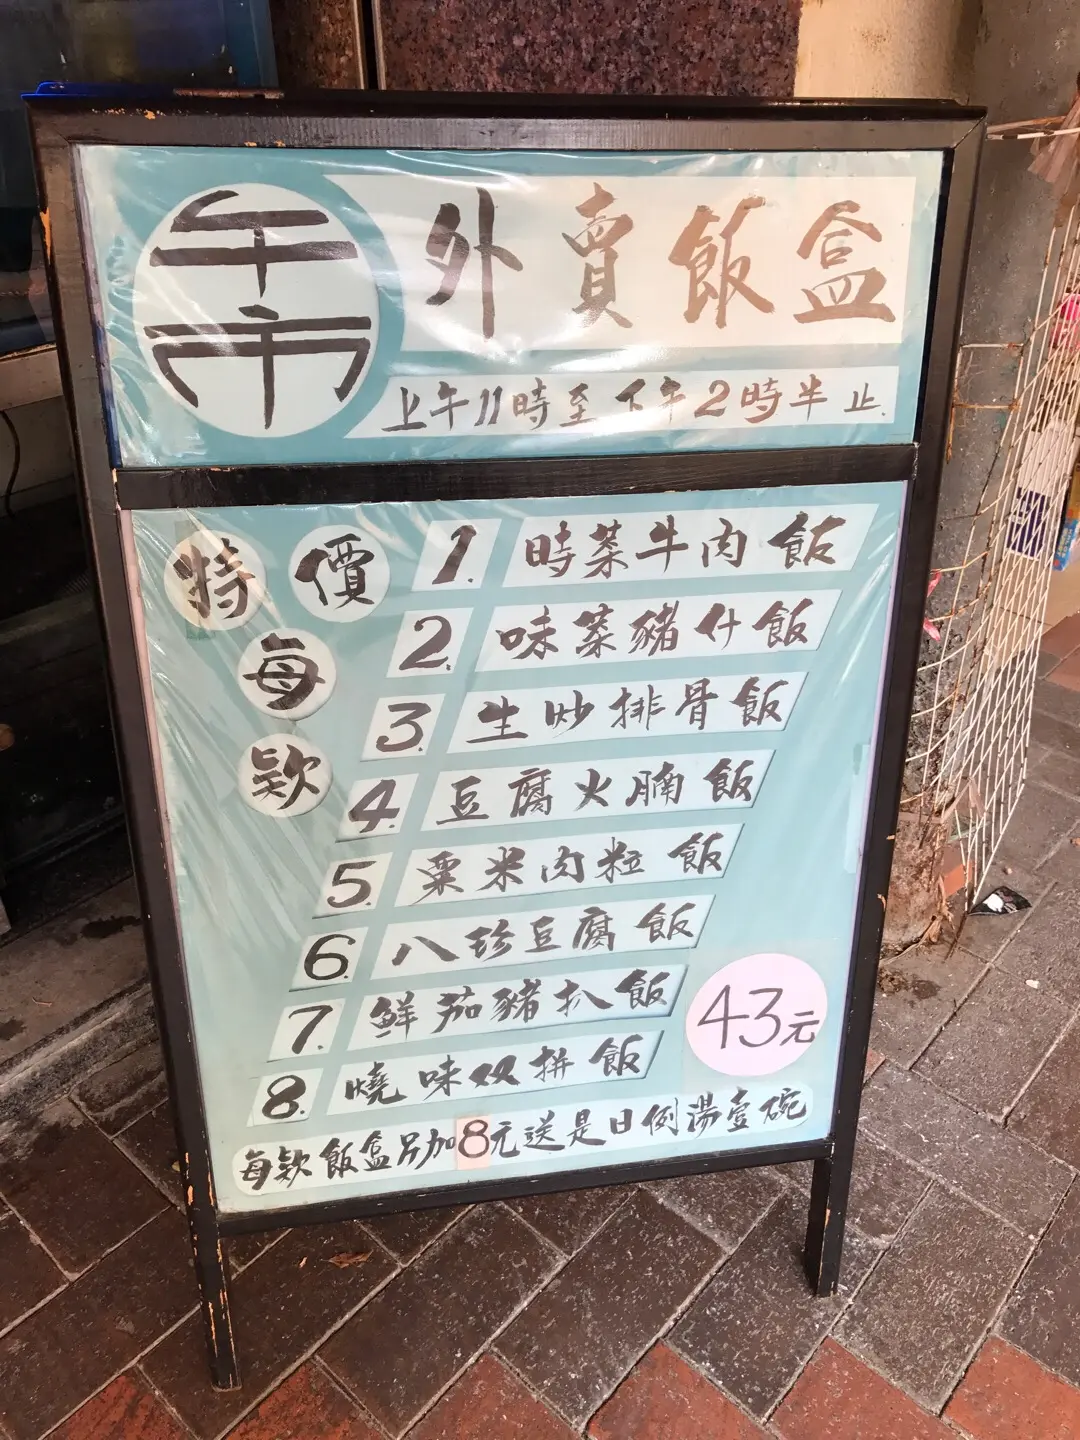 午市
外賣飯盒
上午11時至下午2時半止.
特價
每
欵
1. 時菜牛肉飯
2. 味菜豬什飯
3. 生炒排骨飯
4. 豆腐火腩飯
5. 粟米肉粒飯
6. 八珍豆腐飯
7. 鮮茄豬扒飯
8. 燒味双拼飯
43元
每欵飯盒另加8元送是日例湯壹碗